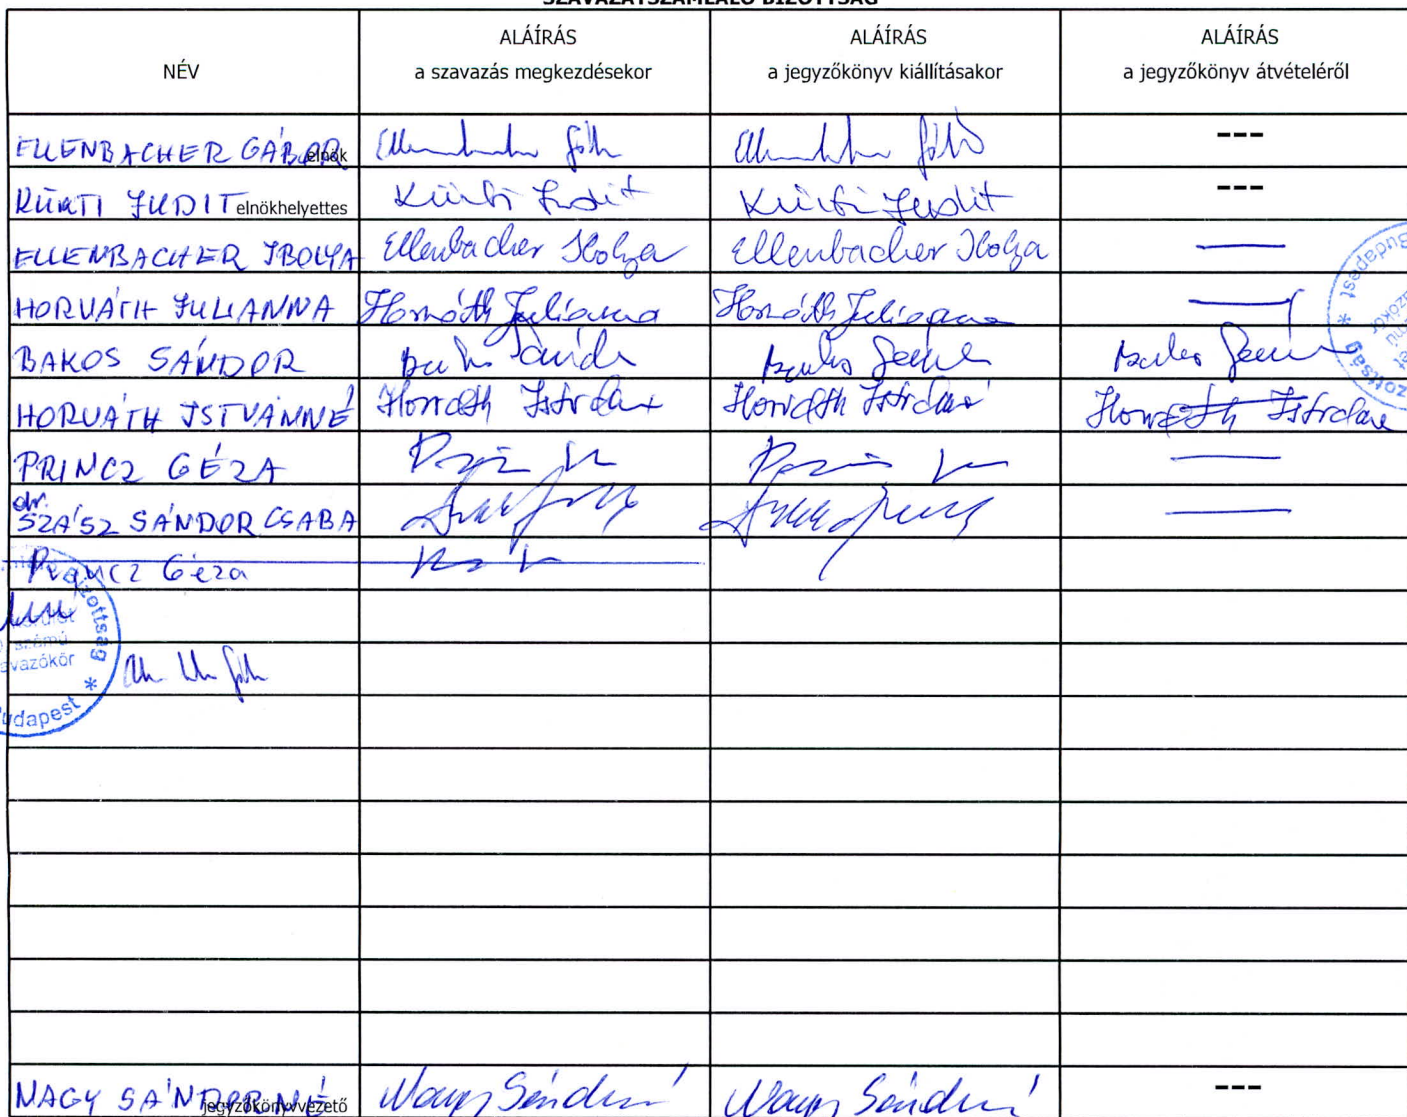 SZAVAZATSZÁMLÁLÓ BIZOTTSÁG
NÉV
ALÁÍRÁS
a szavazás megkezdésekor
ALÁÍRÁS
a jegyzőkönyv kiállításakor
ALÁÍRÁS
a jegyzőkönyv átvételéről
ELLENBACHER GÁBOR elnök ---
KÜRTI JUDIT elnökhelyettes Kürti Judit Kürti Judit ---
ELLENBACHER IBOLYA Ellenbacher Ibolya Ellenbacher Ibolya
HORVÁTH JULIANNA Horváth Julianna Horváth Julianna
BAKOS SÁNDOR
HORVÁTH ISTVÁNNÉ Horváth Istvánné Horváth Istvánné Horváth Istvánné
PRINCZ GÉZA
dr.
SZÁSZ SÁNDOR CSABA
Princz Géza
számú
Budapest
NAGY SÁNDORNÉ jegyzőkönyvvezető Nagy Sándorné Nagy Sándorné ---